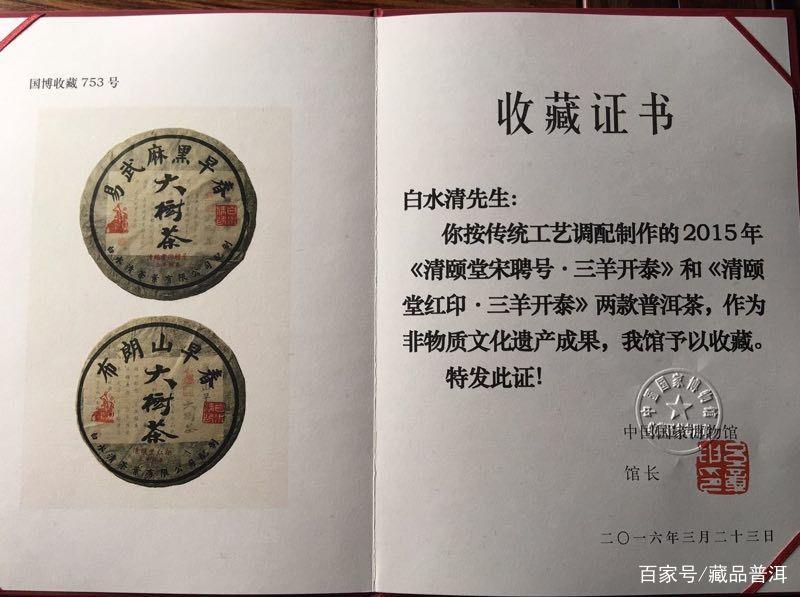 国博收藏 753 号
易武麻黑早春
大树茶
白水清茶业有限公司配制
布朗山早春
大树茶
白水清茶业有限公司配制
收藏证书
白水清先生:
你按传统工艺调配制作的2015年
《清颐堂宋聘号·三羊开泰》和《清颐
堂红印·三羊开泰》两款普洱茶，作为
非物质文化遗产成果，我馆予以收藏。
特发此证!
中国国家博物馆
中国国家博物馆
馆长
二〇一六年三月二十三日
百家号/藏品普洱